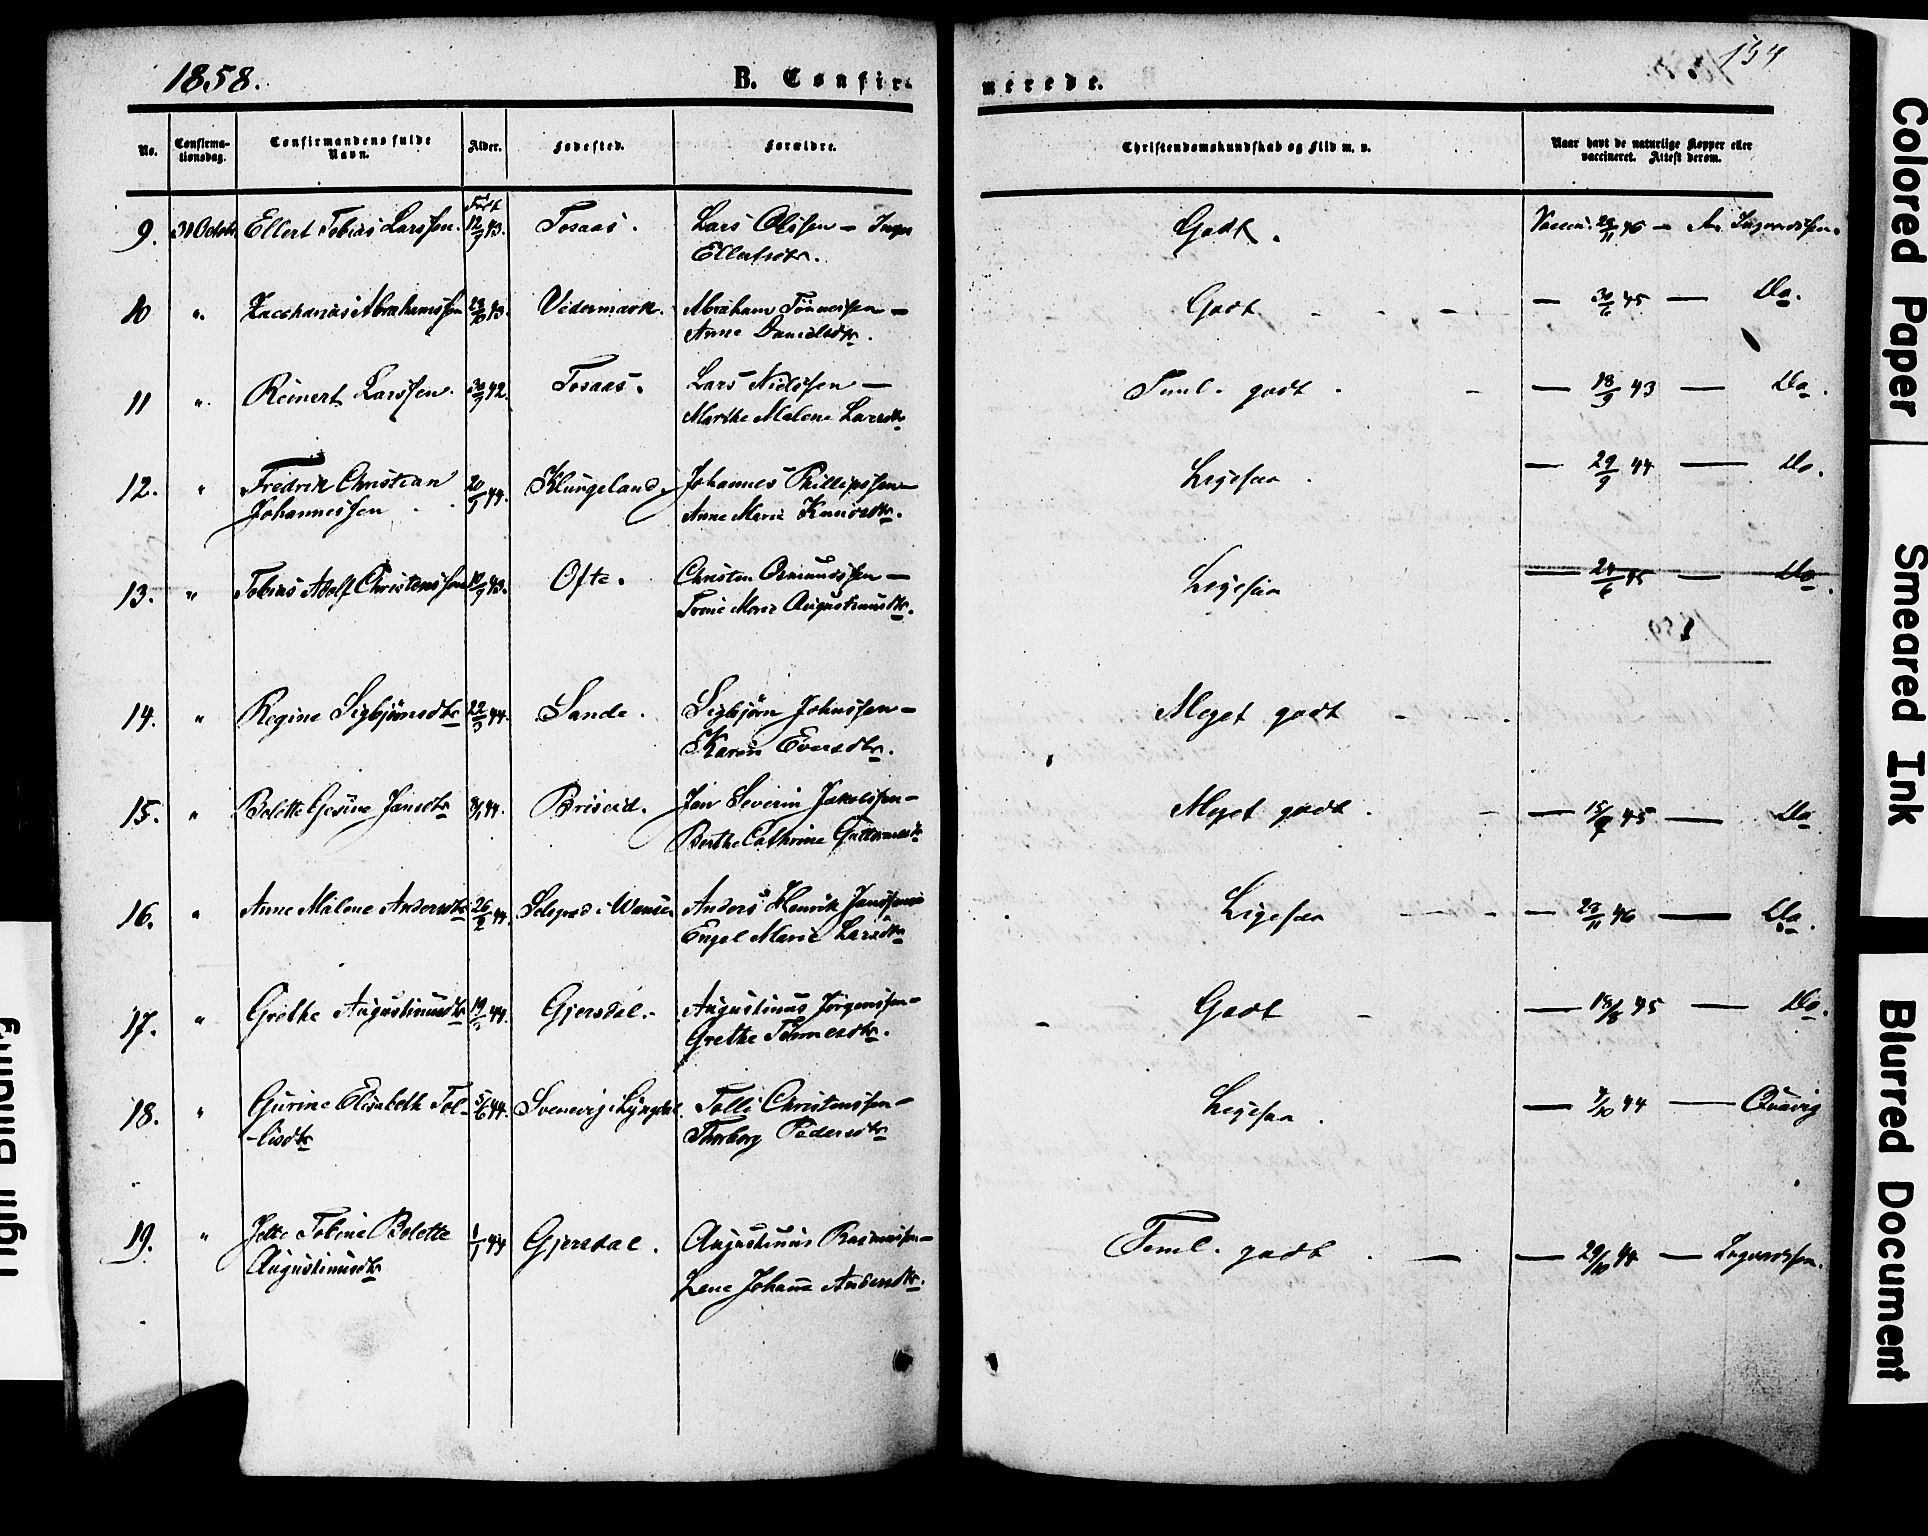 1858.
B. Confir-
merede.
154
No.
Confirma-
tionsdag.
Confirmandens fulde
Navn.
Alder.
Fødested.
Forældre.
Christendomskundskab og Flid m. v.
Naar havt de naturlige Kopper eller
vaccineret. Attest derom.
9. Ellert Tobias Larssen. Født 12/9 43. Tosaas. Lars Olssen – Inger
Ellertsdtr.
Godt.
Vaccin. 25/11 46 –
10 " Zacharias Abrahamssen 43. Vedermark. Abraham Tönnessen –
Anne Danielsdtr.
Godt
– 30/6 45 – Do.
11 " Reinert Larssen. 30/9 42. Tosaas. Lars Nielssen –
Marthe Malene Larsdtr
Teml. godt
– 18/9 43 – Do.
12. " Fredrik Christian
Johannessen 44. Klungeland. Johannes Phillipssen –
Anne Marie Knudsdtr.
Ligesaa
– 29/9 44 – Do.
13. " Tobias Adolf Christenssen 43. Ofte. Christen Osmundssen –
Trine Marie Augustinusdtr.
Ligesaa
– 24/6 45 – Do.
14. " Regine Sigbjörnsdtr 22/3 44. Sande. Sigbjörn Johnssen –
Karen Eversdtr.
Meget godt
15. " Bolette Gesine Jansdtr 44. Briseid. Jan Severin Jakobssen –
Berthe Cathrine
Meget godt.
– 45 – Do
16. " Anne Malene Andersdtr 26/2 44. Anders Henrik Janssen
Engel Marie Larsdtr
Ligesaa
– 46 – Do.
17. " Grethe Augustinusdtr 44. Gjersdal. Augustinus Jörgenssen –
Grethe Tönnesdtr.
Godt
– 45 – Do.
18. " Gurine Elisabeth Tol-
-lisdtr 5/6 44. Svenevig i Lyngdal. Tolli Christenssen –
Thorborg Pedersdtr
Ligesaa.
– 7/10 44 – Qvavig
19. " Jette Tobine Bolette
Augustinusdtr 1/1 44 Gjersdal. Augustinus Rasmussen –
Lene Johanne Andersdtr.
Teml. godt
– 29/10 44 – Ingvardssen.
Colored Paper
Smeared Ink
Blurred Document
Tight Binding